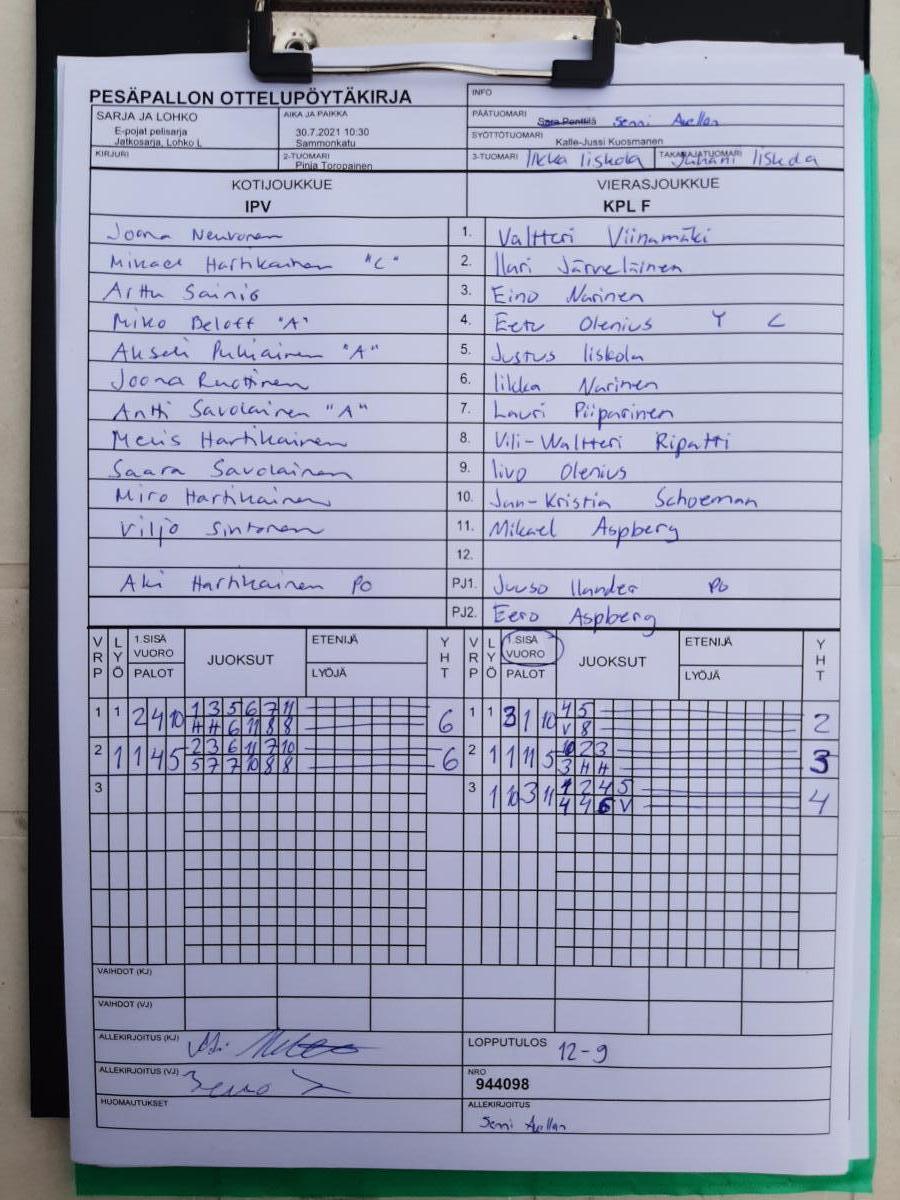 PESÄPALLON OTTELUPÖYTÄKIRJA
INFO
SARJA JA LOHKO
E-pojat pelisarja
Jatkosarja, Lohko L
AIKA JA PAIKKA
30.7.2021 10:30
Sammonkatu
PÄÄTUOMARI
Sara Penttilä Senni Axellan
SYÖTTÖTUOMARI
Kalle-Jussi Kuosmanen
KIRJURI
2-TUOMARI
Pinja Toropainen
3-TUOMARI Iikka Iiskola
TAKARAJATUOMARI Juhani Iiskola
KOTIJOUKKUE
IPV
VIERASJOUKKUE
KPL F
Joona Neuvonen 1. Valtteri Viinamäki
Mikael Hartikainen "C" 2. Ilari Järveläinen
Arttu Sainio 3. Eino Narinen
Miko Beloff "A" 4. Eetu Olenius Y C
Akseli Puhiainen "A" 5. Justus Iiskola
Joona Ruottinen 6. Iikka Narinen
Antti Savolainen "A" 7. Lauri Piiparinen
Meris Hartikainen 8. Vili-Waltteri Ripatti
Saara Savolainen 9. Iivo Olenius
Miro Hartikainen 10. Jan-Kristia Schoeman
Viljo Sintonen 11. Mikael Aspberg
12.
Aki Hartikainen PO PJ1. Juuso Ilander PO
PJ2. Eero Aspberg
VRP LYÖ 1.SISÄ VUORO PALOT JUOKSUT ETENIJÄ LYÖJÄ YHT
VRP LYÖ 1.SISÄ VUORO PALOT JUOKSUT ETENIJÄ LYÖJÄ YHT
1 1 2 4 10 1 3 5 6 7 11 6
H H 6 11 8 8
1 1 3 1 10 4 5 2
V 8
2 1 1 4 5 2 3 6 11 7 10 6
5 7 7 10 8 8
2 1 1 11 5 10 2 3 3
3 H H
3
3 1 10 3 11 1 2 4 5 4
4 4 6 V
VAIHDOT (KJ)
VAIHDOT (VJ)
ALLEKIRJOITUS (KJ)
LOPPUTULOS 12-9
ALLEKIRJOITUS (VJ)
NRO
944098
HUOMAUTUKSET
ALLEKIRJOITUS
Senni Axellan